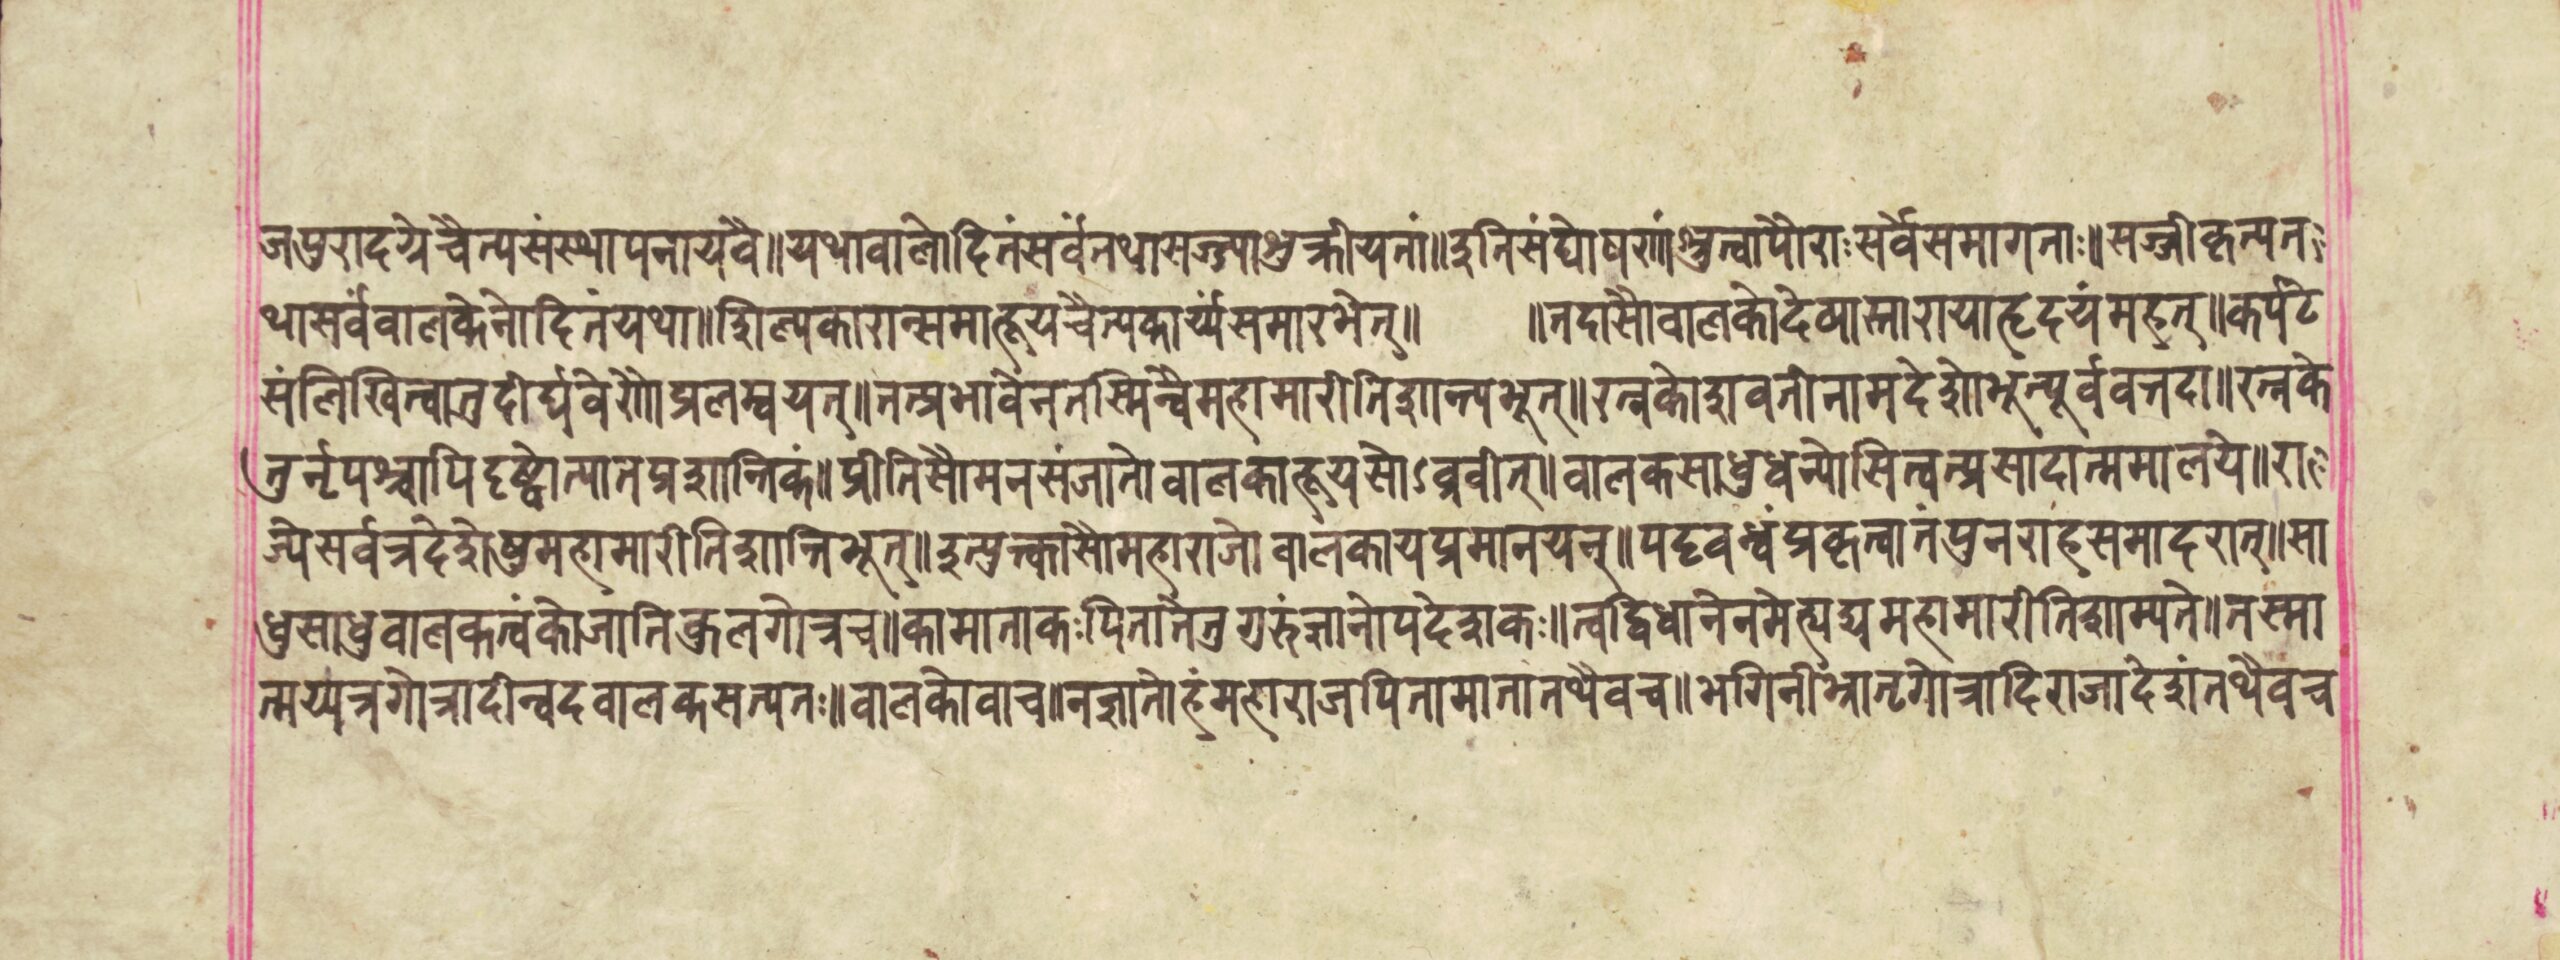 जपुरादग्रेचैत्यसंस्थापनायवै॥यथावालोदितंसर्वंतथासज्ज्याशुक्रीयतां॥इतिसंघोषणांश्रुत्वापौराःसर्वेसमागताः॥सज्जीकृत्यत
थासर्वंवालकेनोदितंयथा॥शिल्पकारान्समाहूयचैत्यकार्य्यंसमारभेत्॥ ॥तदासौवालकोदेव्यास्तारायाहृदयंमहत्॥कर्पटे
संलिखित्वातुदीर्घवेणौप्रलम्वयत्॥तत्प्रभावेनतस्मिन्वैमहामारीतिशान्त्यभूत्॥रत्नकोशावतीनामदेशोभूत्पूर्ववत्तदा॥रत्नके
तुर्नृपश्चापिदृष्ट्वोत्पातप्रशान्तिकं॥प्रीतिसौमनसंजातोवालकाहूयसोऽव्रवीत्॥वालकसाधुधन्योसित्वत्प्रसादान्ममालये॥रा
ज्येसर्वत्रदेशेषुमहामारीतिशान्तिभूत्॥इत्युक्त्वासौमहाराजोवालकायप्रमानयन्॥पट्टवन्धंप्रकृत्वातंपुनराहसमादरात्॥सा
धुसाधुवालकत्वंकोजातिकुलगोत्रच॥कामाताकःपितातेतुगुरुंज्ञानोपदेशकः॥त्वद्विधानेनमेह्यद्यमहामारीतिशाम्यते॥तस्मा
त्मय्यत्रगोत्रादीन्वदवालकसत्यतः॥वालकोवाच॥नज्ञातोहंमहाराजपितामातातथैवच॥भगिनीभ्रातृगोत्रादिराजादेशंतथैवच